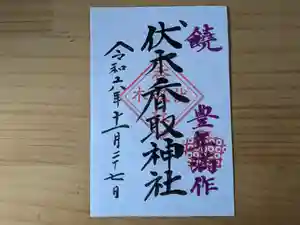 饒
豊 作
伏木香取神社
令和六年十一月二十七日